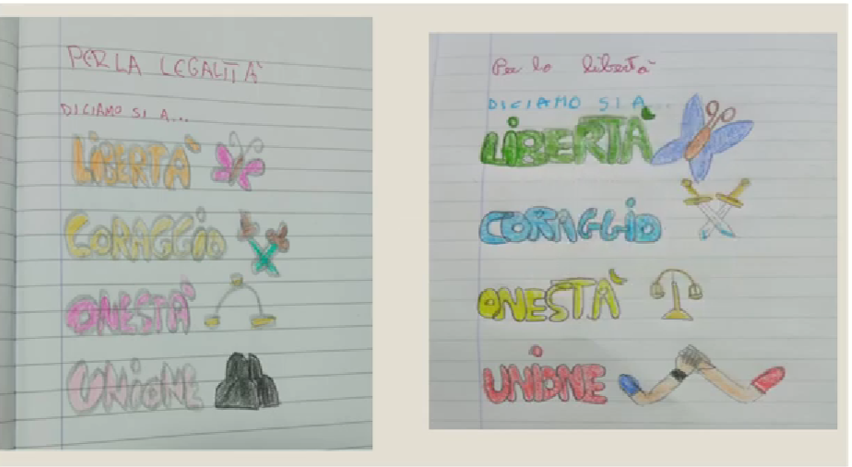 PER LA LEGALITÀ
DICIAMO SI A...
LIBERTÀ
CORAGGIO
ONESTÀ
UNIONE
Per la libertà
DICIAMO SI A...
LIBERTÀ
CORAGGIO
ONESTÀ
UNIONE